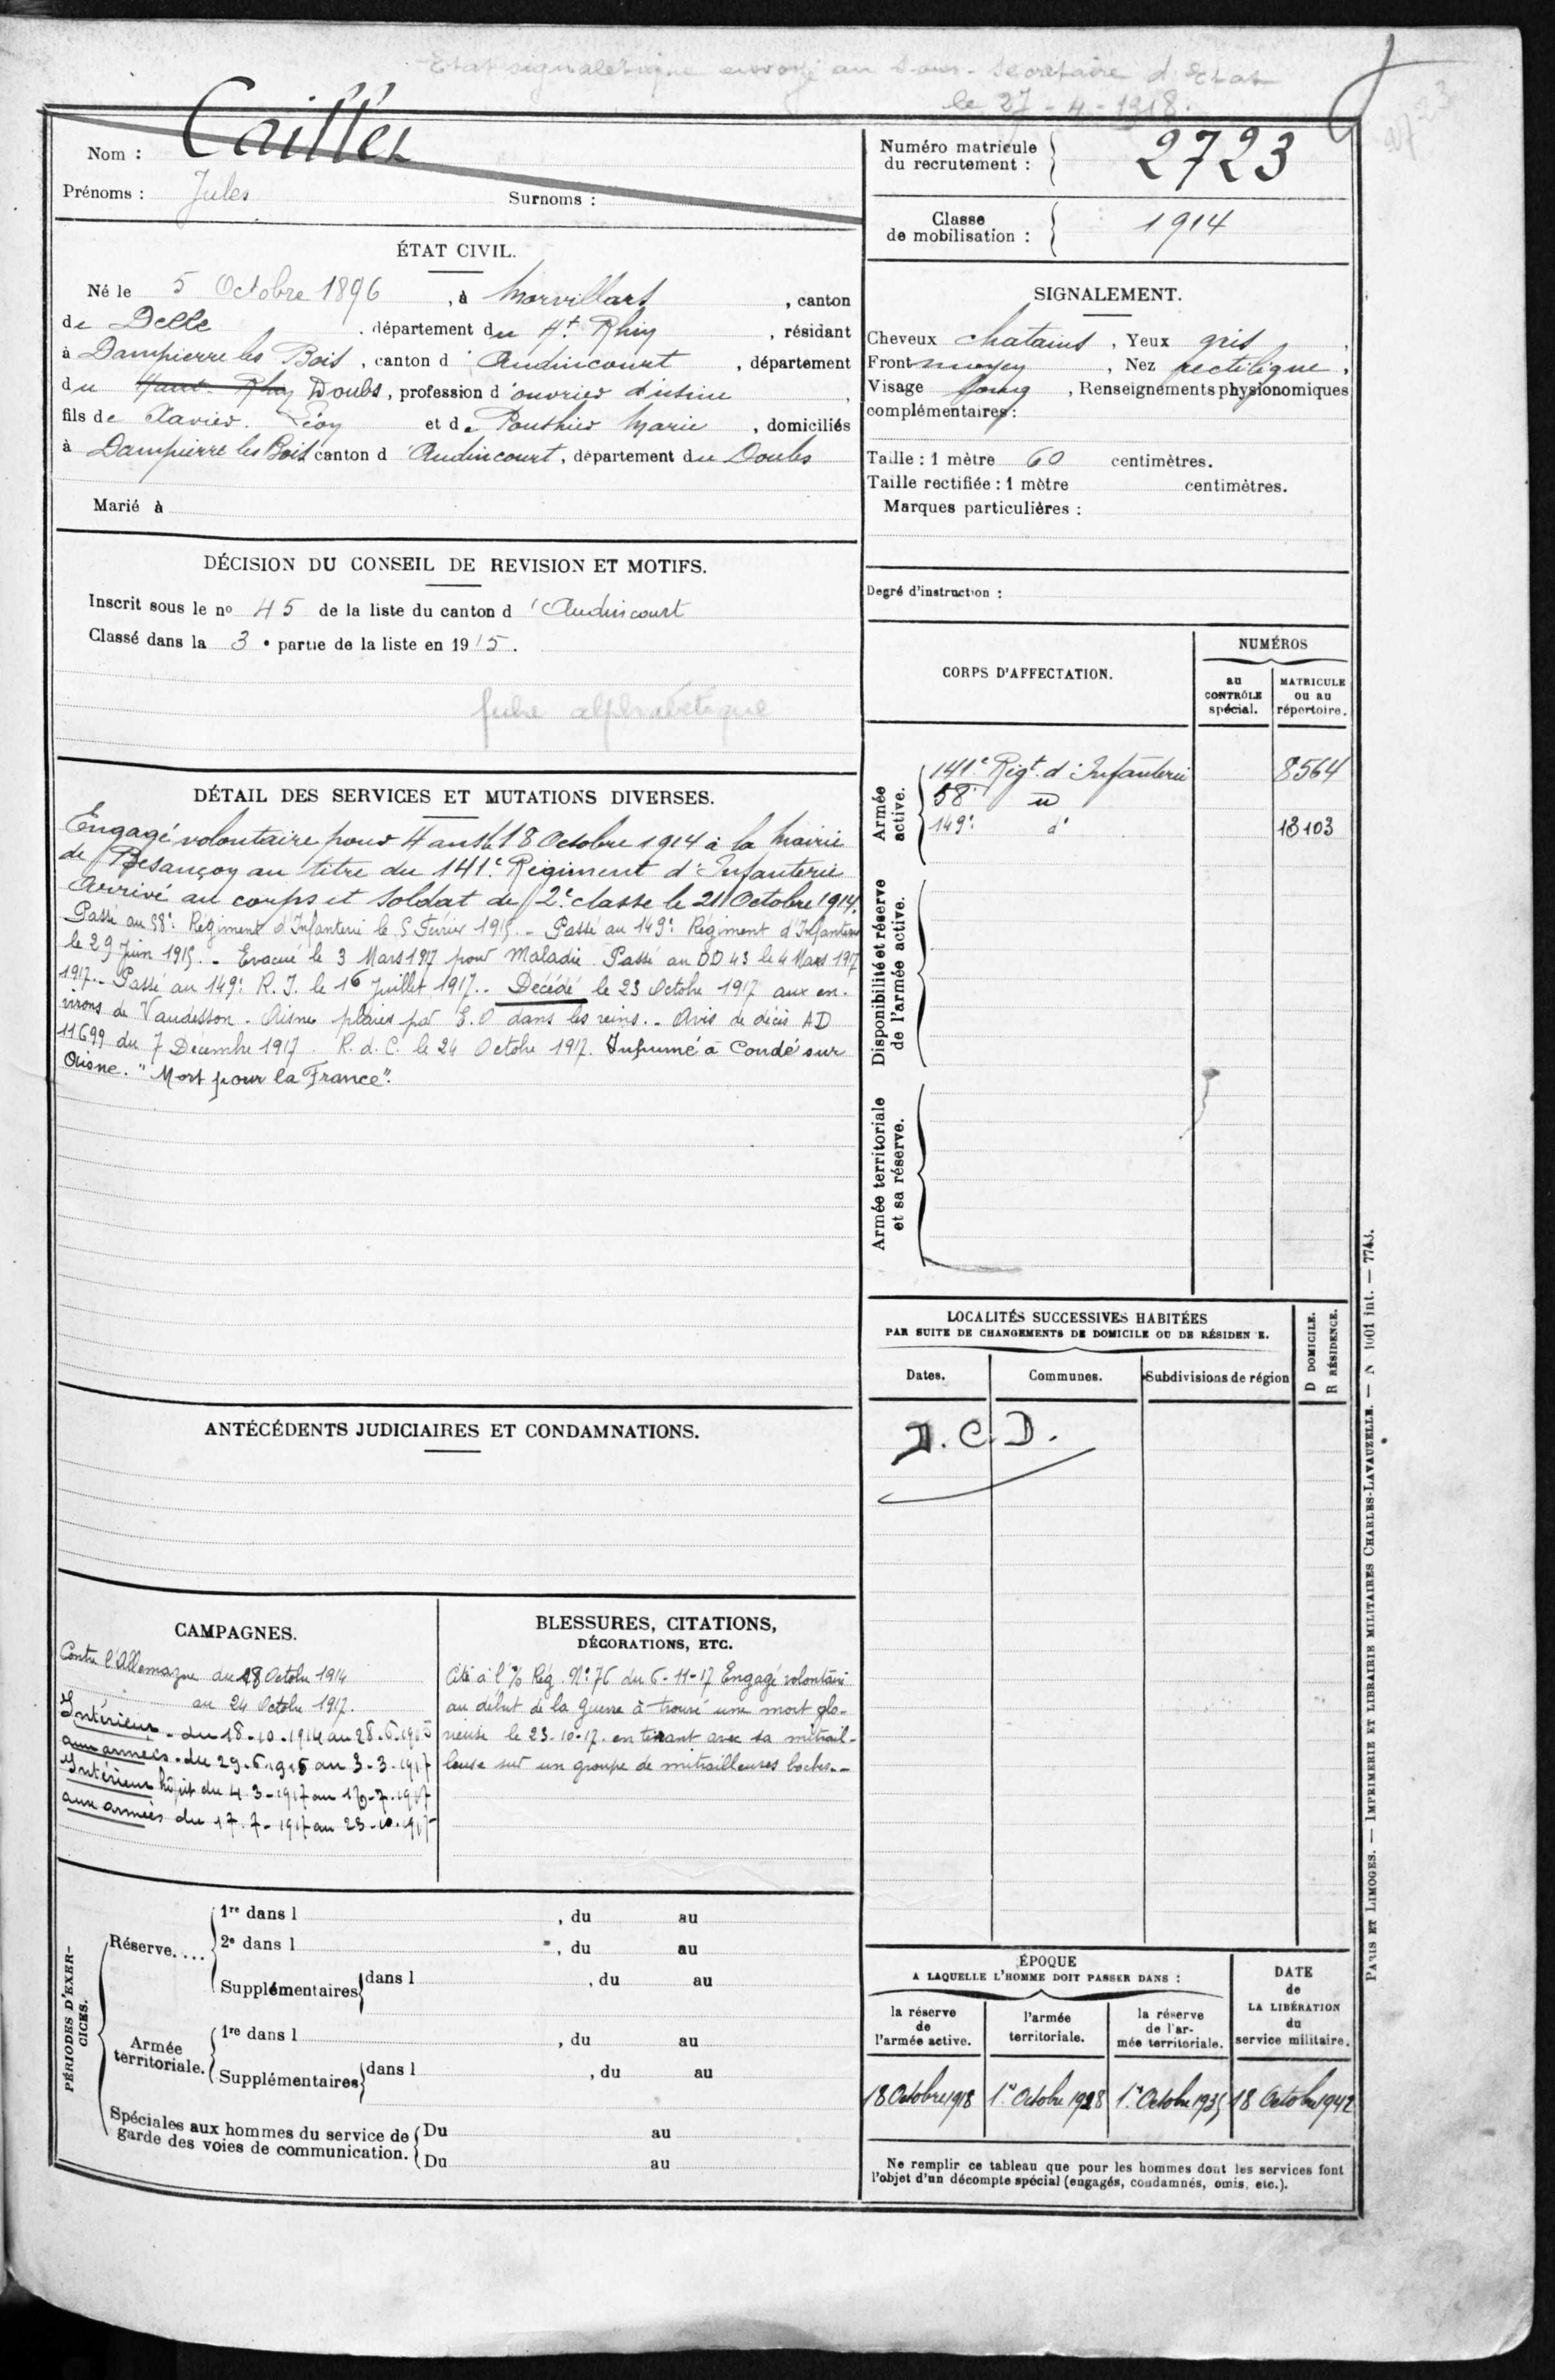 Etat signalétique envoyé au Sous-Secrétaire d'Etat
le 27-4-1918.
Nom : Caillez
Prénoms : Jules Surnoms :
Numéro matricule du recrutement : 2723
Classe de mobilisation : 1914
ÉTAT CIVIL.
Né le 5 Octobre 1896, à Morvillars, canton
de Delle, département du Ht Rhin, résidant
à Dampierre les Bois, canton d'Audincourt, département
du Haut-Rhin Doubs, profession d'ouvrier d'usine,
fils de Xavier Léon et de Pouthier Marie, domiciliés
à Dampierre les Bois canton d'Audincourt, département du Doubs
Marié à
SIGNALEMENT.
Cheveux chatains, Yeux gris,
Front moyen, Nez rectiligne,
Visage long, Renseignements physionomiques
complémentaires :
Taille : 1 mètre 60 centimètres.
Taille rectifiée : 1 mètre centimètres.
Marques particulières :
Degré d'instruction :
DÉCISION DU CONSEIL DE REVISION ET MOTIFS.
Inscrit sous le no 45 de la liste du canton d'Audincourt
Classé dans la 3e partie de la liste en 1915.
fiche alphabétique
DÉTAIL DES SERVICES ET MUTATIONS DIVERSES.
Engagé volontaire pour 4 ans le 18 Octobre 1914 à la Mairie
de Besançon au titre du 141e Régiment d'Infanterie
Arrivé au corps et soldat de 2e classe le 21 Octobre 1914.
Passé au 58e Régiment d'Infanterie le 5 Février 1915.- Passé au 149e Régiment d'Infanterie
le 29 Juin 1915.- Evacué le 3 Mars 1917 pour Maladie. Passé au DD 43 le 4 Mars 1917
1917.- Passé au 149e R.I. le 16 Juillet 1917.- Décédé le 23 Octobre 1917 aux en-
virons de Vaudesson. Aisne plaies par E.O dans les reins.- Avis de décès AD
11699 du 7 Décembre 1917. R.d.C. le 24 Octobre 1917. Inhumé à Condé sur
Aisne. "Mort pour la France".
CORPS D'AFFECTATION.
NUMÉROS
au CONTRÔLE spécial.
MATRICULE ou au répertoire.
Armée active.
141e Rigt d'Infanterie 8564
58e d°
149e d° 13103
Disponibilité et réserve de l'armée active.
Armée territoriale et sa réserve.
LOCALITÉS SUCCESSIVES HABITÉES
PAR SUITE DE CHANGEMENTS DE DOMICILE OU DE RÉSIDEN E.
D DOMICILE.
R RÉSIDENCE.
Dates. Communes. Subdivisions de région
D.C.D.
ANTÉCÉDENTS JUDICIAIRES ET CONDAMNATIONS.
CAMPAGNES.
Contre l'Allemagne du 18 Octobre 1914
au 24 Octobre 1917.
Intérieur - du 18-10-1914 au 28-6-1915
aux armées - du 29-6-1915 au 3-3-1917
Intérieur hôpit du 4-3-1917 au 16-7-1917
aux armées du 17-7-1917 au 23-10-1917
BLESSURES, CITATIONS,
DÉCORATIONS, ETC.
Cité à l'% Rég. No 76 du 6-11-17 Engagé volontaire
au début de la Guerre à trouvé une mort glo-
rieuse le 23-10-17 en tirant avec sa mitrail-
leuse sur un groupe de mitrailleuses boches.-
PÉRIODES D'EXERCICES.
Réserve....
1re dans l , du au
2e dans l , du au
Supplémentaires dans l , du au
Armée territoriale.
1re dans l , du au
Supplémentaires dans l , du au
Spéciales aux hommes du service de garde des voies de communication.
Du au
Du au
ÉPOQUE
A LAQUELLE L'HOMME DOIT PASSER DANS :
la réserve de l'armée active.
l'armée territoriale.
la réserve de l'armée territoriale.
DATE de LA LIBÉRATION du service militaire.
18 Octobre 1918 1er Octobre 1928 1er Octobre 1935 18 Octobre 1942
Ne remplir ce tableau que pour les hommes dont les services font
l'objet d'un décompte spécial (engagés, condamnés, omis, etc.).
PARIS ET LIMOGES. — IMPRIMERIE ET LIBRAIRIE MILITAIRES CHARLES-LAVAUZELLE. — N 1001 int. — 7743.